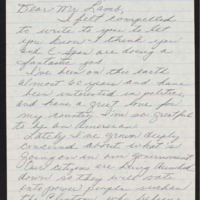 Dear Mr Lamb,
I felt compelled
to write to you to let
you know I think you
and C-Span are doing a
fantastic job.
I've been on this earth
almost 60 years and have
been interested in politics
and have a great love for
my country. I'm so grateful
to be an American.
Lately I've grown deeply
concerned about what is
going on in our government
Our citizens are being
down so they will vote
into power people such as
the Clintons who believe